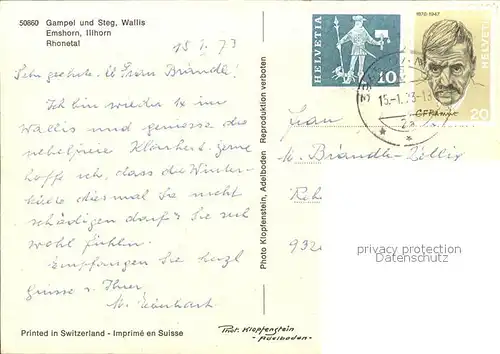 50860 Gampel und Steg, Wallis
Emshorn, Illhorn
Rhonetal
15.1.73
Sehr geehrte Frau Brändle!
Ich bin wieder 1x im
Wallis und geniesse die
nebelfreie Klarheit. gerne
hoffe ich, dass die Winter-
kure diesmal Sie nicht
schädigen darf & Sie sich
wohl fühlen.
Empfangen Sie herzl
Grüsse v. Ihrer
M.
Printed in Switzerland - Imprimé en Suisse
Photo Klopfenstein, Adelboden Reproduktion verboten
Phot. Klopfenstein
- Adelboden -
HELVETIA
10
1878-1947
HELVETIA
CF Ramuz
20
15.-1.73-
Frau
M. Brändle-Zellix
932
privacy protection
Datenschutz